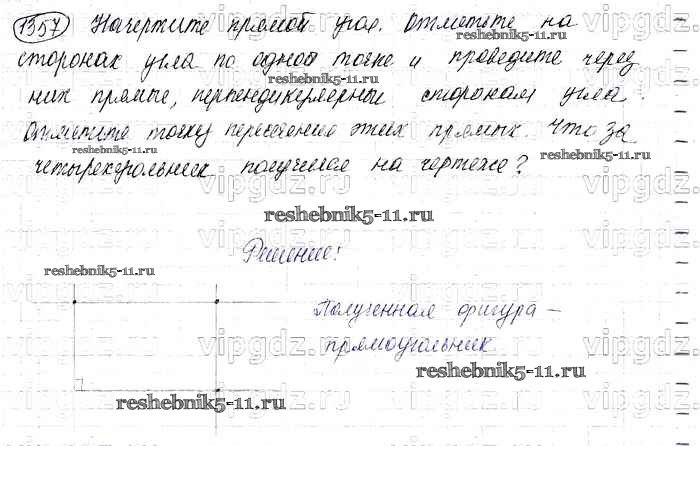 1357 Начертите прямой угол. Отметьте на
сторонах угла по одной точке и проведите через
reshebnik5-11.ru
них прямые, перпендикулярный сторонам угла.
reshebnik5-11.ru
Отметьте точку пересечение этих прямых. Что за
reshebnik5-11.ru
reshebnik5-11.ru
четырехугольник получился на чертеже?
vipgdz.ru
reshebnik5-11.ru
Решение:
reshebnik5-11.ru
vipgdz.ru
Полученная фигура –
прямоугольник
vipgdz.ru
reshebnik5-11.ru
reshebnik5-11.ru